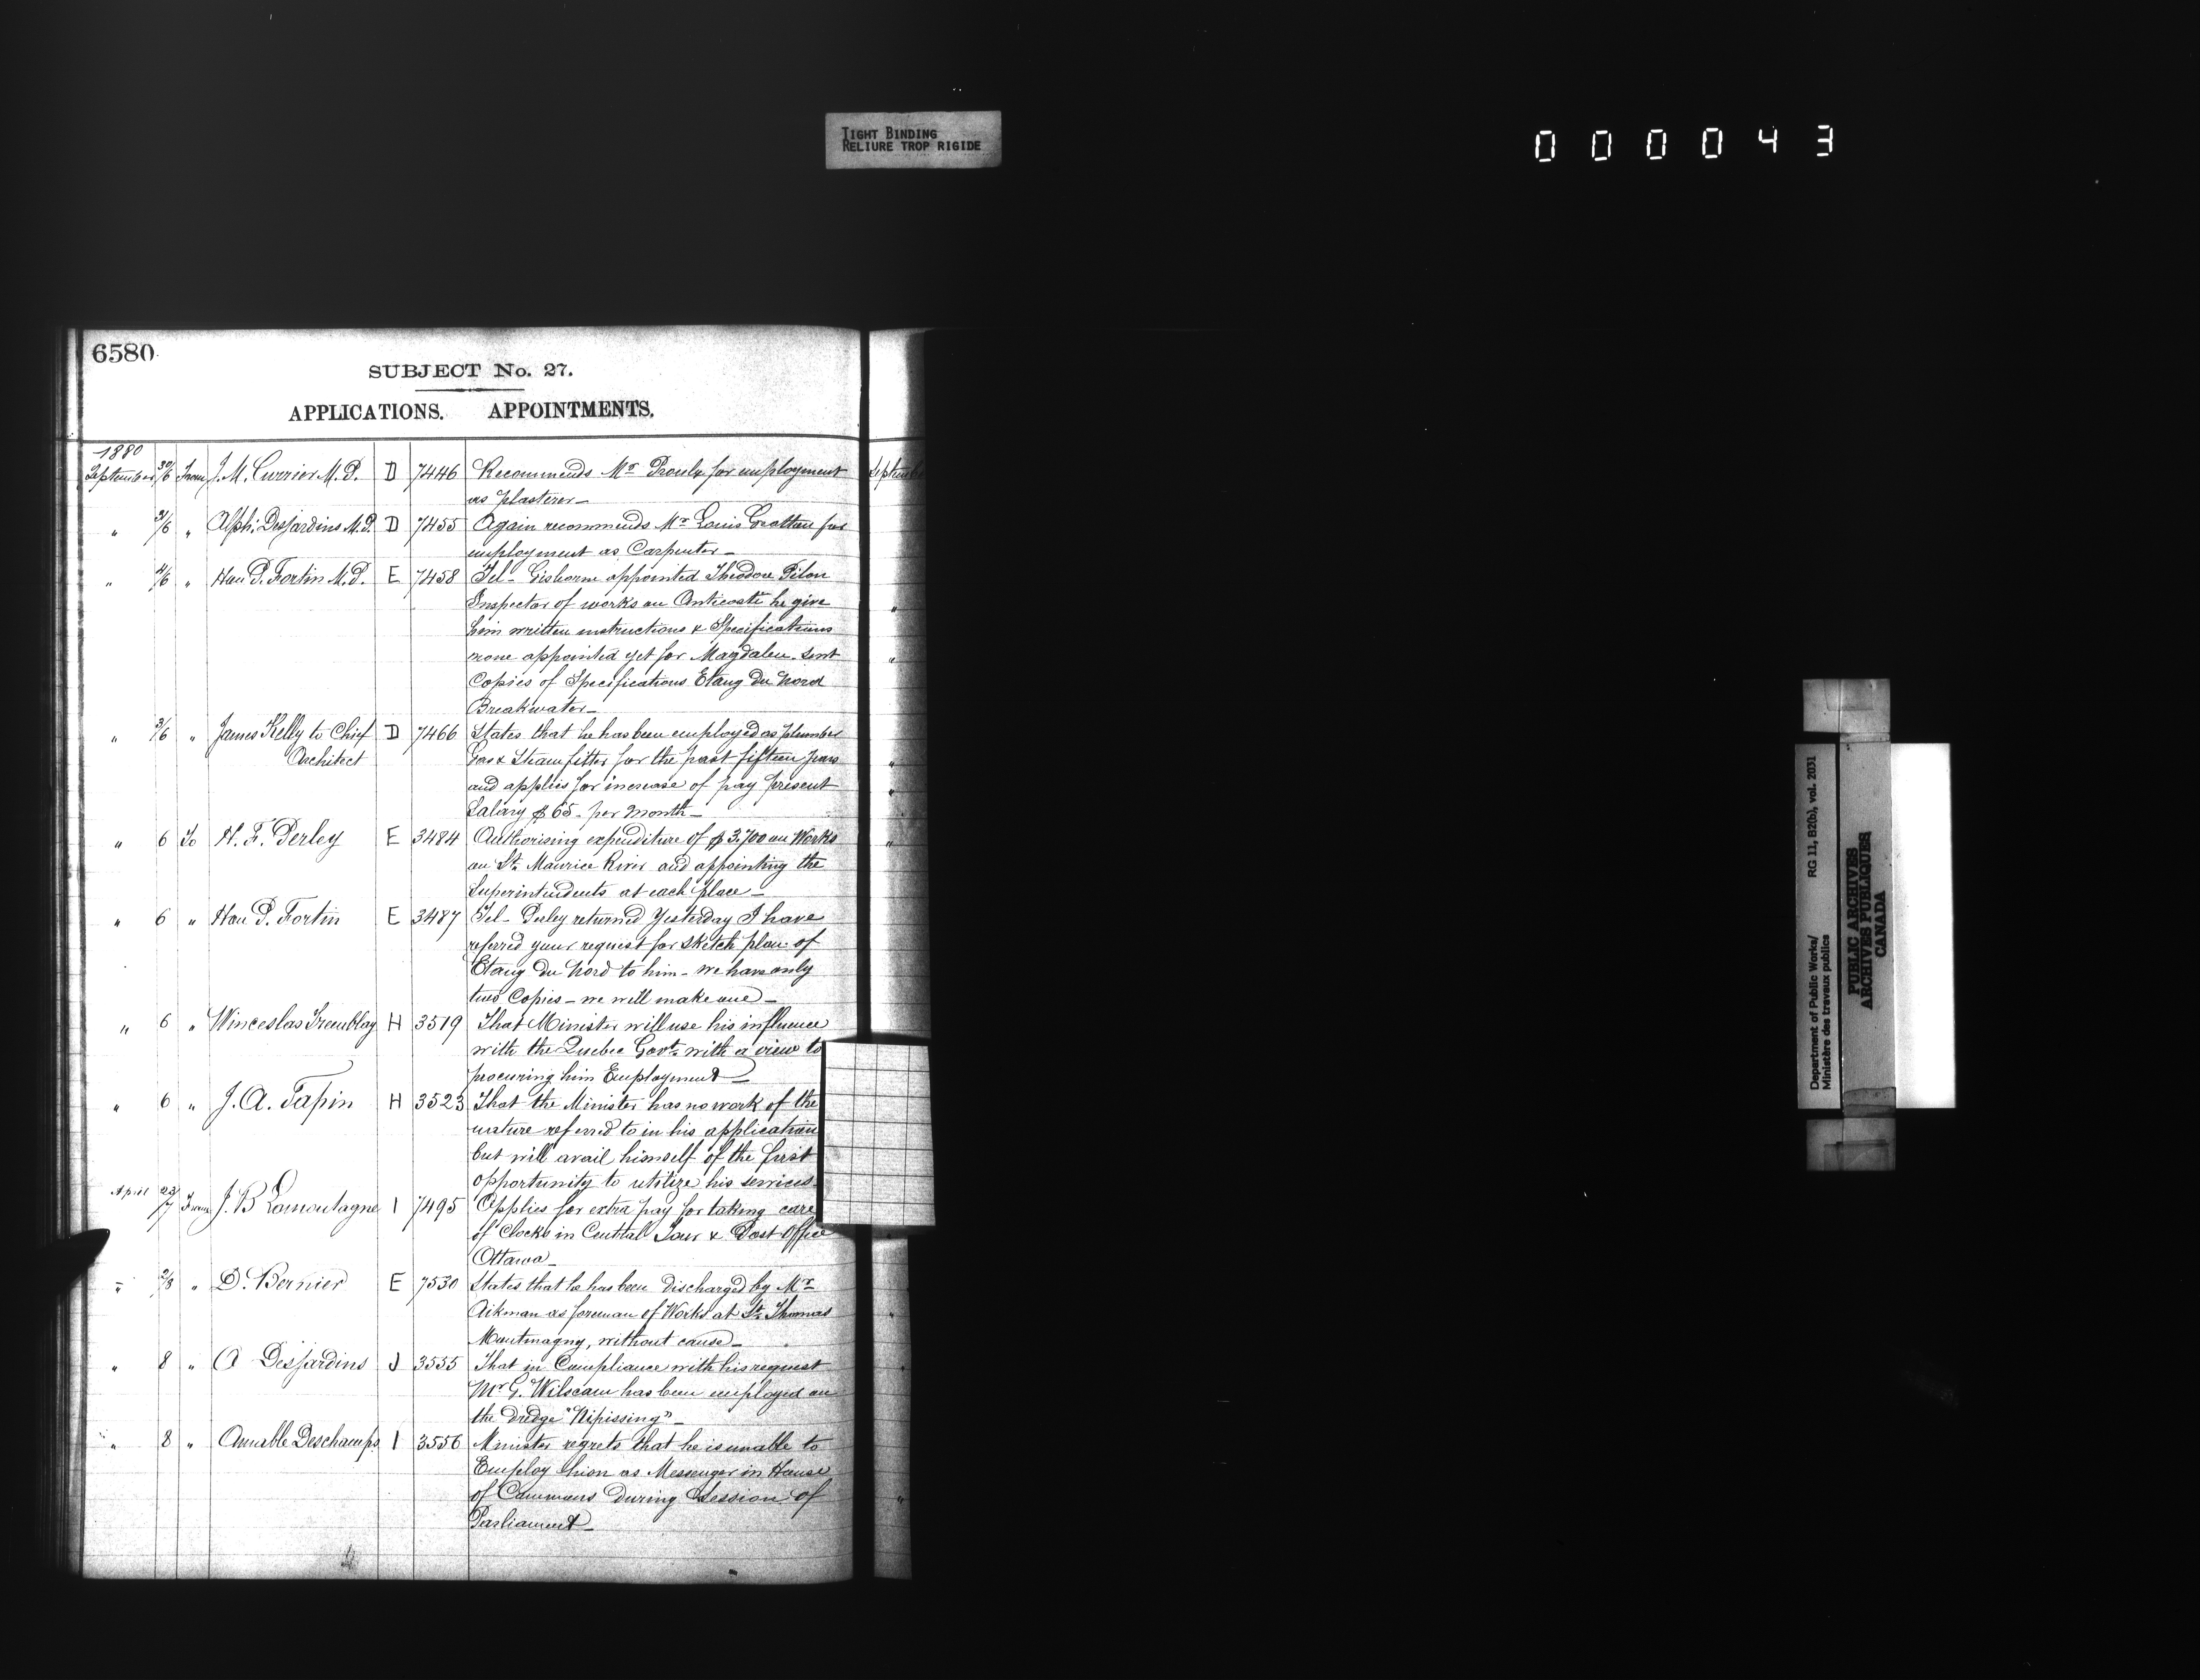 TIGHT BINDING
RELIURE TROP RIGIDE
000043
6580
SUBJECT No. 27.
APPLICATIONS. APPOINTMENTS.
1880
September 30/6 From J. M. Currier M.P. D 7446 Recommends Mr Proulx for employment
as plasterer_
" 31/6 " Alph. DesJardins M.P. D 7455 Again recommends Mr Louis Gratton for
employment as Carpenter_
" 4/6 " Hon P. Fortin M.P. E 7458 Tel_ Gisborne appointed Theodore Pilon
Inspector of works on Anticosti he give
him written instructions & Specifications
none appointed yet for Magdalen. Sent
Copies of Specifications Etang Du Nord
Breakwater_
" 3/6 " James Kelly to Chief D 7466 States that he has been employed as plumber
Architect Gas & Steam fitter for the past fifteen years
and applies for increase of pay present
Salary $65. per month_
" 6 To H. F. Perley E 3484 Authorising expenditure of $3,700 on Works
on St. Maurice River and appointing the
Superintendents at each place_
" 6 " Hon P. Fortin E 3487 Tel_ Perley returned Yesterday I have
referred your request for sketch plan of
Etang Du Nord to him_ we have only
two Copies_ we will make one_
" 6 " Winceslas Tremblay H 3519 That Minister will use his influence
with the Quebec Govt. with a view to
procuring him Employment_
" 6 " J. A. Tapin H 3523 That the Minister has no work of the
nature referred to in his application
but will avail himself of the first
opportunity to utilize his services.
April 23/7 From J. B Lamontagne I 7495 Applies for extra pay for taking care
of Clocks in Central Tower & Post Office
Ottawa_
" 2/8 " D. Bernier E 7530 States that he has been Discharged by Mr
Aikman as foreman of Works at St. Thomas
Montmagny, without cause_
" 8 " A DesJardins J 3535 That in Compliance with his request
Mr G. Wilscam has been employed on
the Dredge "Nipissing"_
" 8 " Amable Deschamps I 3556 Minister regrets that he is unable to
Employ him as Messenger in House
of Commons During Session of
Parliament_
Department of Public Works/
Ministère des travaux publics
RG 11, B2(b), vol. 2031
PUBLIC ARCHIVES
ARCHIVES PUBLIQUES
CANADA